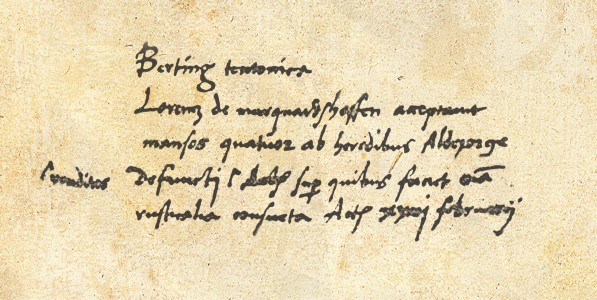 Berting teutonica
Lorencz de marquardshoffen acceptavit
mansos quatuor ab heredibus Aldejorge
venditos defuncti sup quibus faciet oia
rusticalia consueta Act februarij